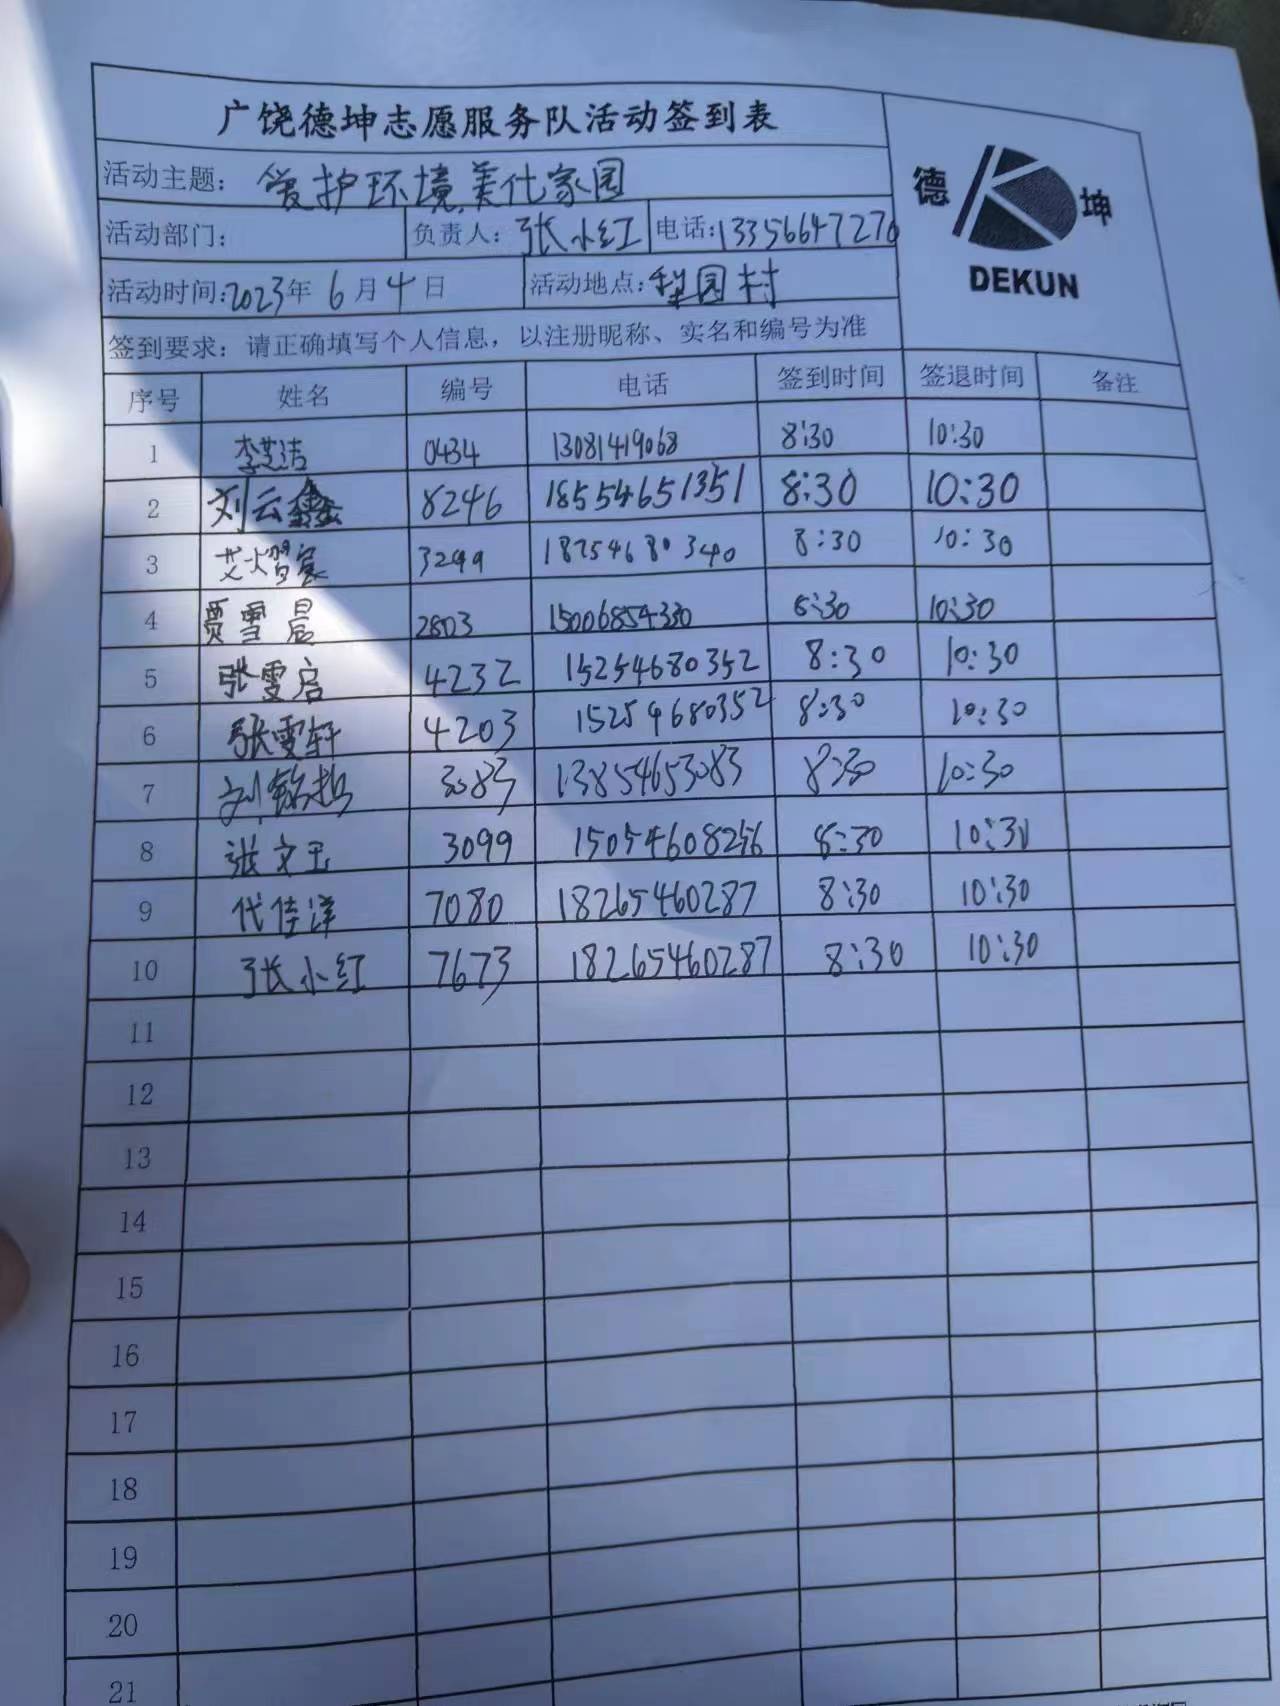 广饶德坤志愿服务队活动签到表
德 坤
DEKUN
活动主题：爱护环境,美化家园
活动部门： 负责人：张小红 电话:13356647270
活动时间:2023年 6月4日 活动地点:梨园村
签到要求：请正确填写个人信息，以注册昵称、实名和编号为准
序号 姓名 编号 电话 签到时间 签退时间 备注
1 李芸洁 0434 13081419068 8:30 10:30
2 刘云鑫 8246 18554651351 8:30 10:30
3 3299 18754680340 8:30 10:30
4 贾雪晨 2803 15006854330 8:30 10:30
5 张雯启 4232 15254680352 8:30 10:30
6 张雯轩 4203 15254680352 8:30 10:30
7 3083 13854653083 8:30 10:30
8 张文玉 3099 15054608256 8:30 10:30
9 代佳洋 7080 18265460287 8:30 10:30
10 张小红 7673 18265460287 8:30 10:30
11
12
13
14
15
16
17
18
19
20
21